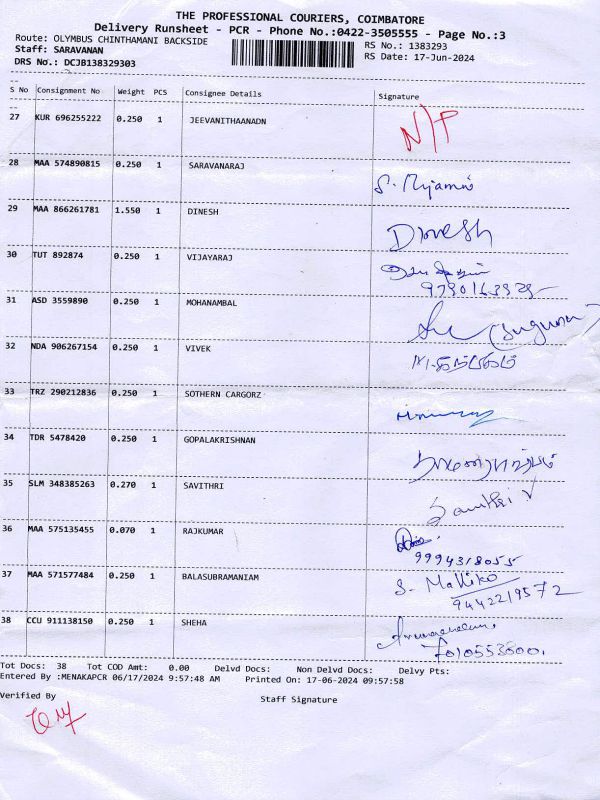 THE PROFESSIONAL COURIERS, COIMBATORE
Delivery Runsheet - PCR - Phone No.:0422-3505555 - Page No.:3
Route: OLYMBUS CHINTHAMANI BACKSIDE
RS No.: 1383293
Staff: SARAVANAN
RS Date: 17-Jun-2024
DRS No.: DCJB138329303
S No Consignment No Weight PCS Consignee Details Signature
27 KUR 696255222 0.250 1 JEEVANITHAANADN N/P
28 MAA 574890815 0.250 1 SARAVANARAJ
29 MAA 866261781 1.550 1 DINESH Dinesh
30 TUT 892874 0.250 1 VIJAYARAJ
31 ASD 3559890 0.250 1 MOHANAMBAL
32 NDA 906267154 0.250 1 VIVEK
33 TRZ 290212836 0.250 1 SOTHERN CARGORZ
34 TDR 5478420 0.250 1 GOPALAKRISHNAN
35 SLM 348385263 0.270 1 SAVITHRI Savithri V
36 MAA 575135455 0.070 1 RAJKUMAR
9994318055
37 MAA 571577484 0.250 1 BALASUBRAMANIAM S. Mallika
9442219572
38 CCU 911138150 0.250 1 SHEHA
Tot Docs: 38 Tot COD Amt: 0.00 Delvd Docs: Non Delvd Docs: Delvy Pts:
Entered By :MENAKAPCR 06/17/2024 9:57:48 AM Printed On: 17-06-2024 09:57:58
Verified By
Staff Signature